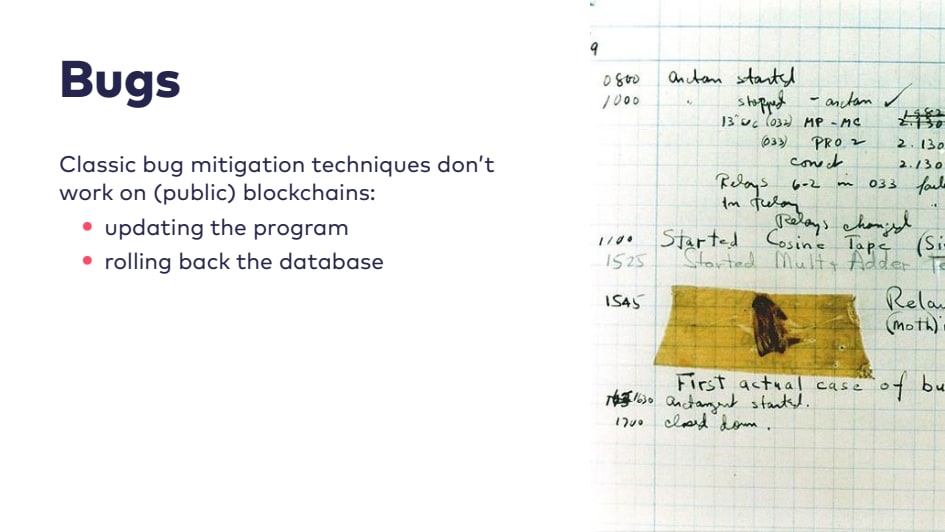 Bugs
Classic bug mitigation techniques don't
work on (public) blockchains:
• updating the program
• rolling back the database
9
0800 arctan started
1000 " stopped - arctan ✓
13 (032) MP - MC
(033) PRO 2 2.130
conect 2.130
Relays 6-2 in 033 fail
In relay
Relays changed
1100 Started Cosine Tape (Si
1525 Started Mult + Adder Te
1545 Rela
(moth) i
First actual case of bu
1630 arctangent started.
1700 closed down.